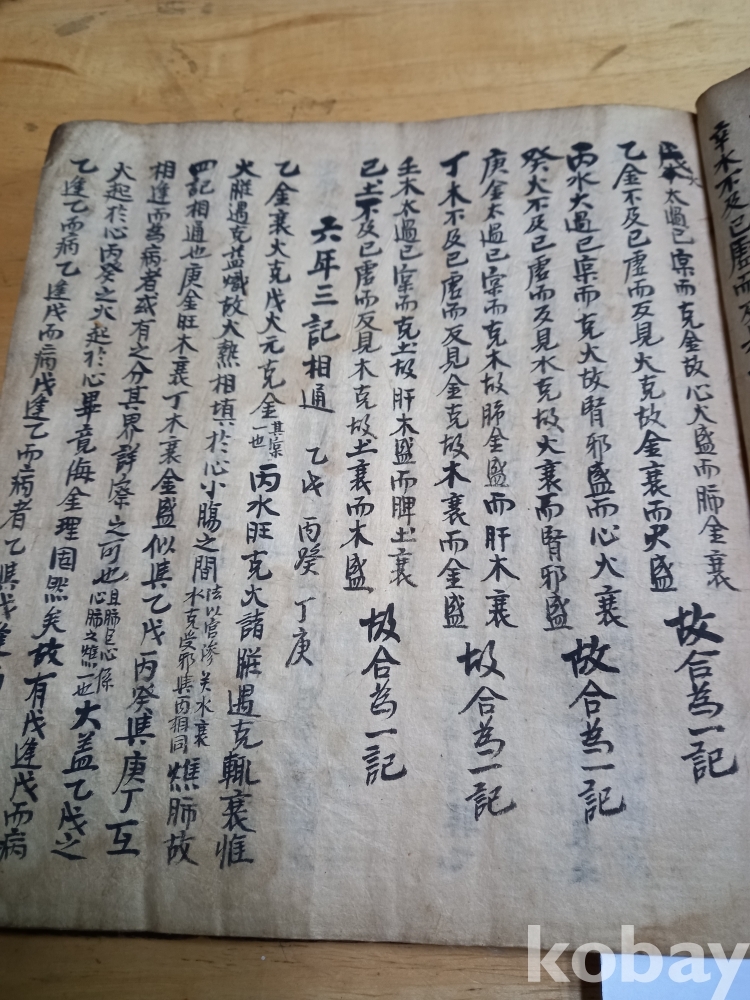 辛水不及已虛而反
火太過已實而克金故心火盛而肺金衰
乙金不及已虛而反見火克故金衰而火盛 故合為一記
丙水太過已實而克火故腎邪盛而心火衰
癸火不及已虛而反見水克故火衰而腎邪盛 故合為一記
庚金太過已實而克木故肺金盛而肝木衰
丁木不及已虛而反見金克故木衰而金盛 故合為一記
壬木太過已實而克土故肝木盛而脾土衰
己土不及已虛而反見木克故土衰而木盛 故合為一記
六年三記相通 乙戊 丙癸 丁庚
乙金衰火克戊火元克金其實一也 丙水旺克火諸臟遇克輒衰惟
火臟遇克益熾故大熱相塡於心小腸之間法以官滲 水衰水克受邪與丙相同 燋肺故
四記相通也庚金旺木衰丁木衰金盛似與乙戊丙癸與庚丁互
相逢而為病者或有之分其界詳察之可也且肺是心係心肺之燋一也 大盖乙戊之
火起於心丙癸之火起於心畢竟侮金理固然矣故有戊逢戊而病
乙逢乙而病乙逢戊而病戊逢乙而病者乙與戊